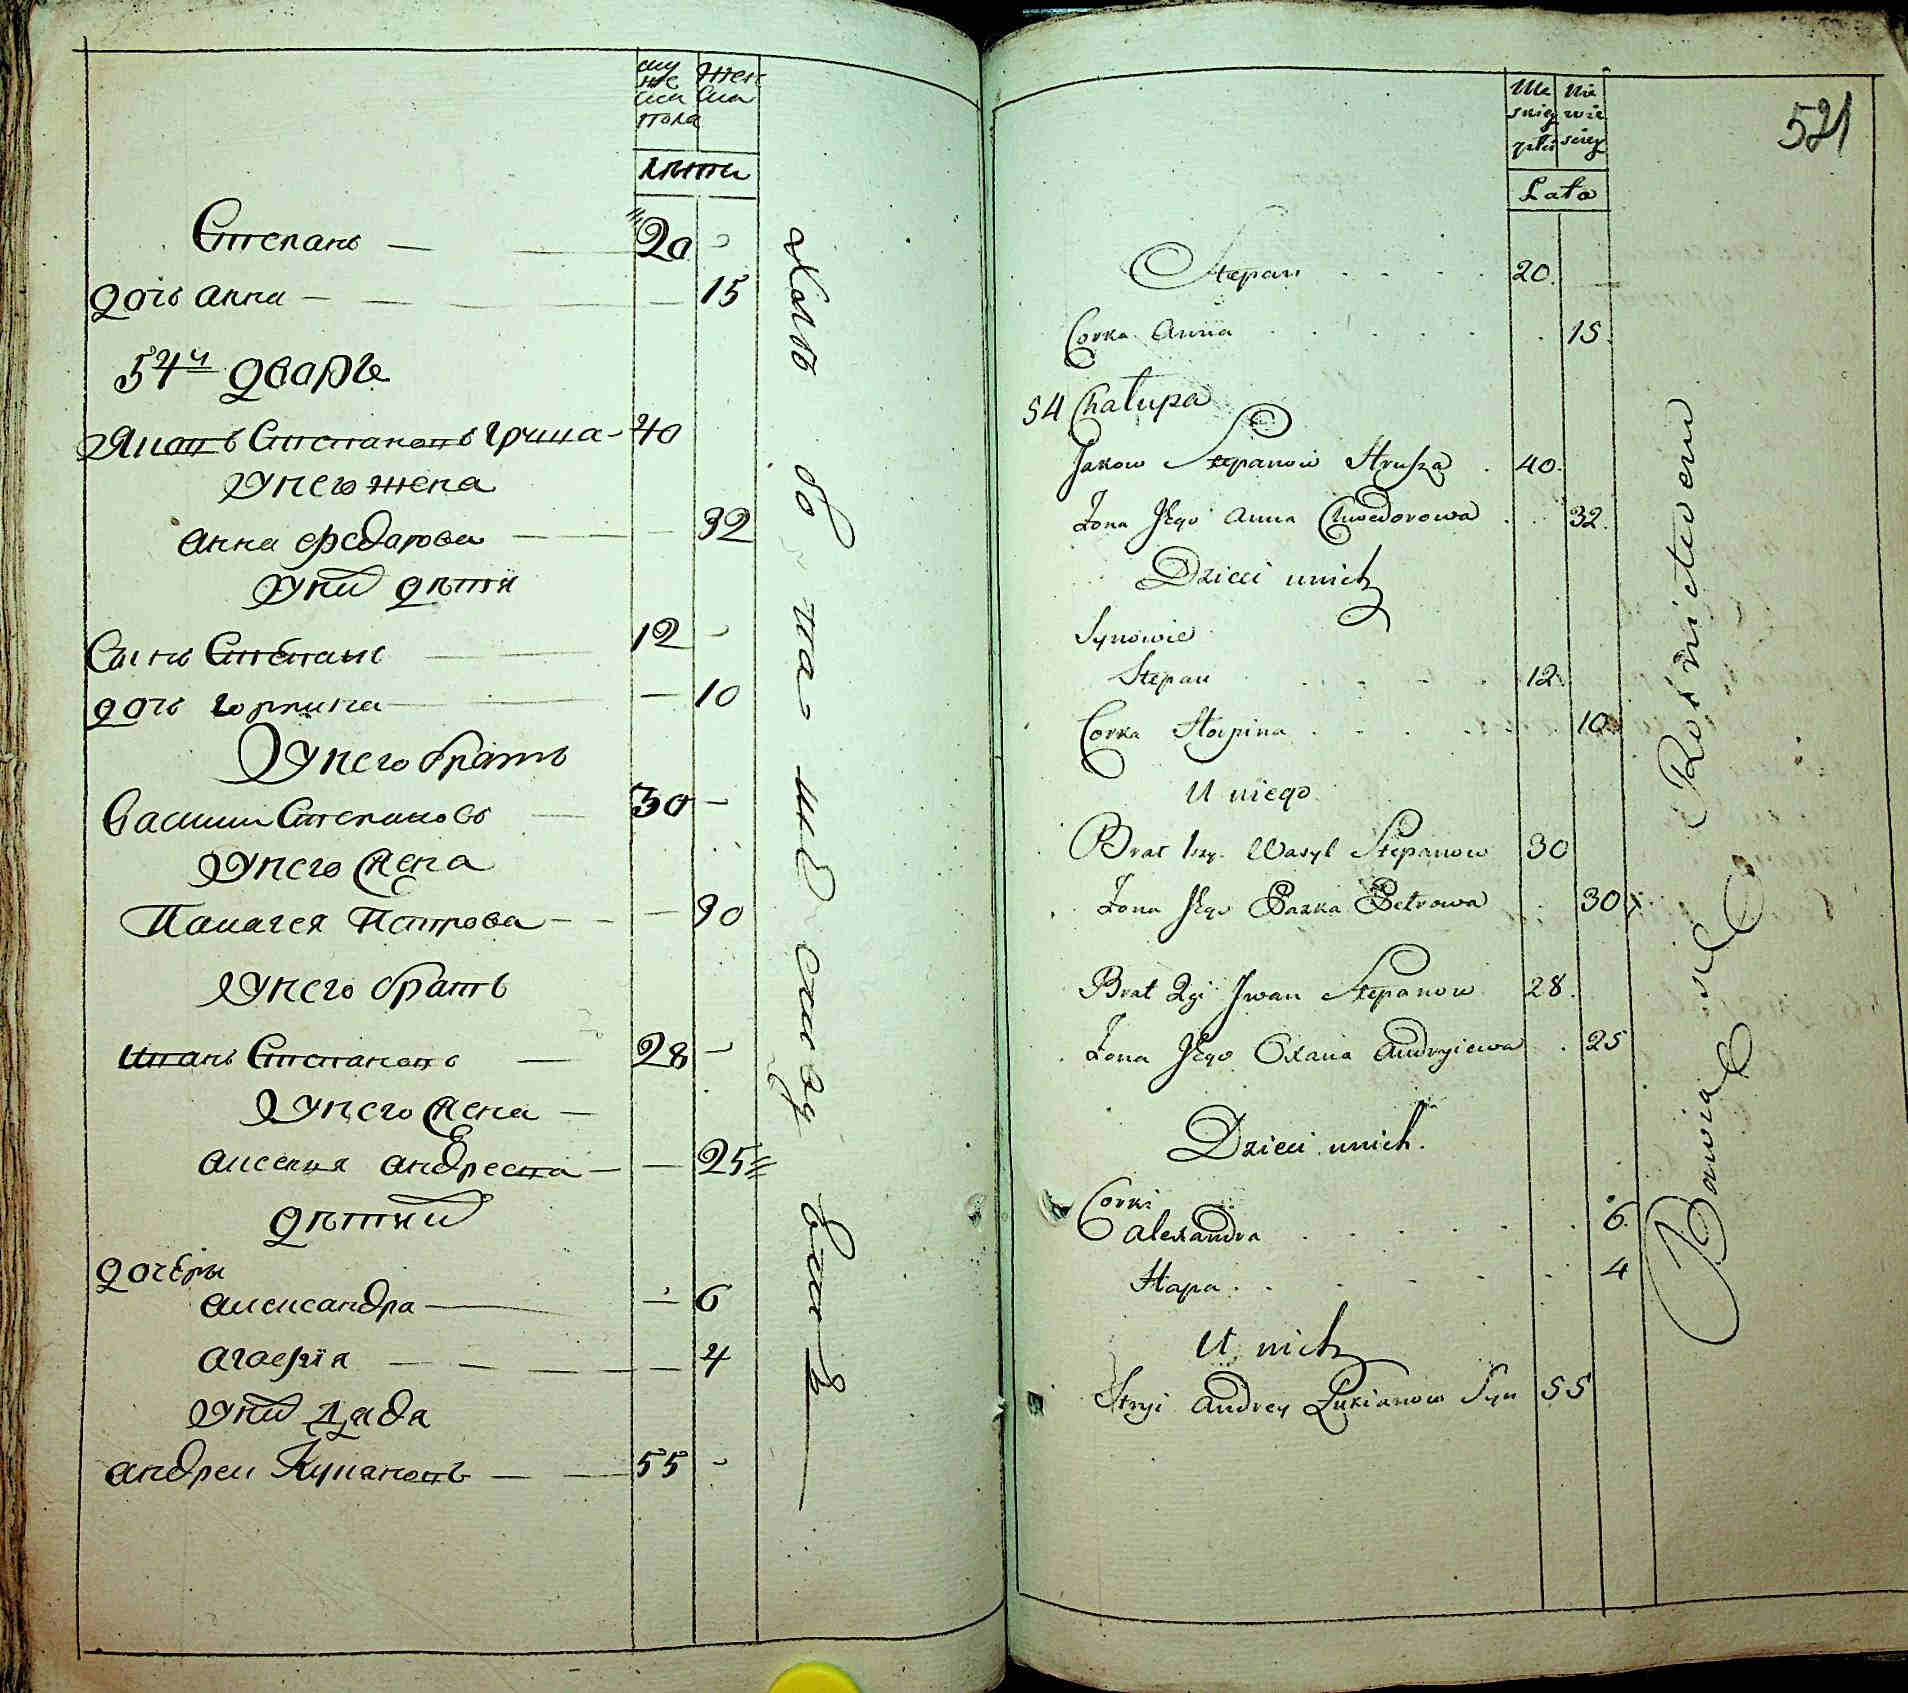 муже
ска
пола
женска
лѣта
Степанъ — 20 -
дочь анна — 15
54й дваръ
Яковъ Степановъ груша - 40
унего жена
анна федарова — 32
уних дѣти
Сынъ Стѣпанъ — 12 -
дочь горпина — 10
унего братъ
васили Степановъ — 30 -
унего жена
Палагея Петрова — 30
унего братъ
иванъ Степановъ — 28 -
унего жена —
аксения андреева — 25
дѣтий
дочеры
александра — 6
агафия — 4
уних дядя
андреи Лукановъ — 55 -
Mę
skiej
płci
Nie
wie
sciey
Lata
521
Stepan 20
Corka Anna 15
54 Chałupa
Jakow Stepanow Hrusza 40
Żona Jego Anna Chwedorowa 32
Dzieci unich
Synowie
Stepan 12
Corka Horpina 10
U niego
Brat 1szy Wasyl Stepanow 30
Żona Jego Pazka Petrowa 30
Brat 2gi Jwan Stepanow 28
Żona Jego Oxana Andryiewa 25
Dzieci unich
Corki
Alexandra 6
Hapa 4
U nich
Stryi Andrey Łukianow Syn 55